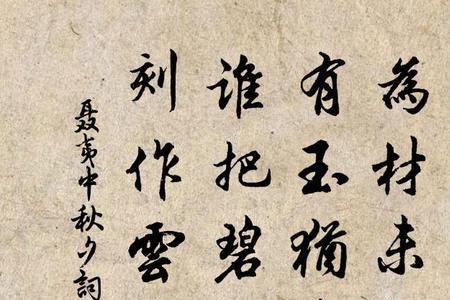 為材未
有玉猶
誰把碧
刻作雲
聂夷中秋夕詞